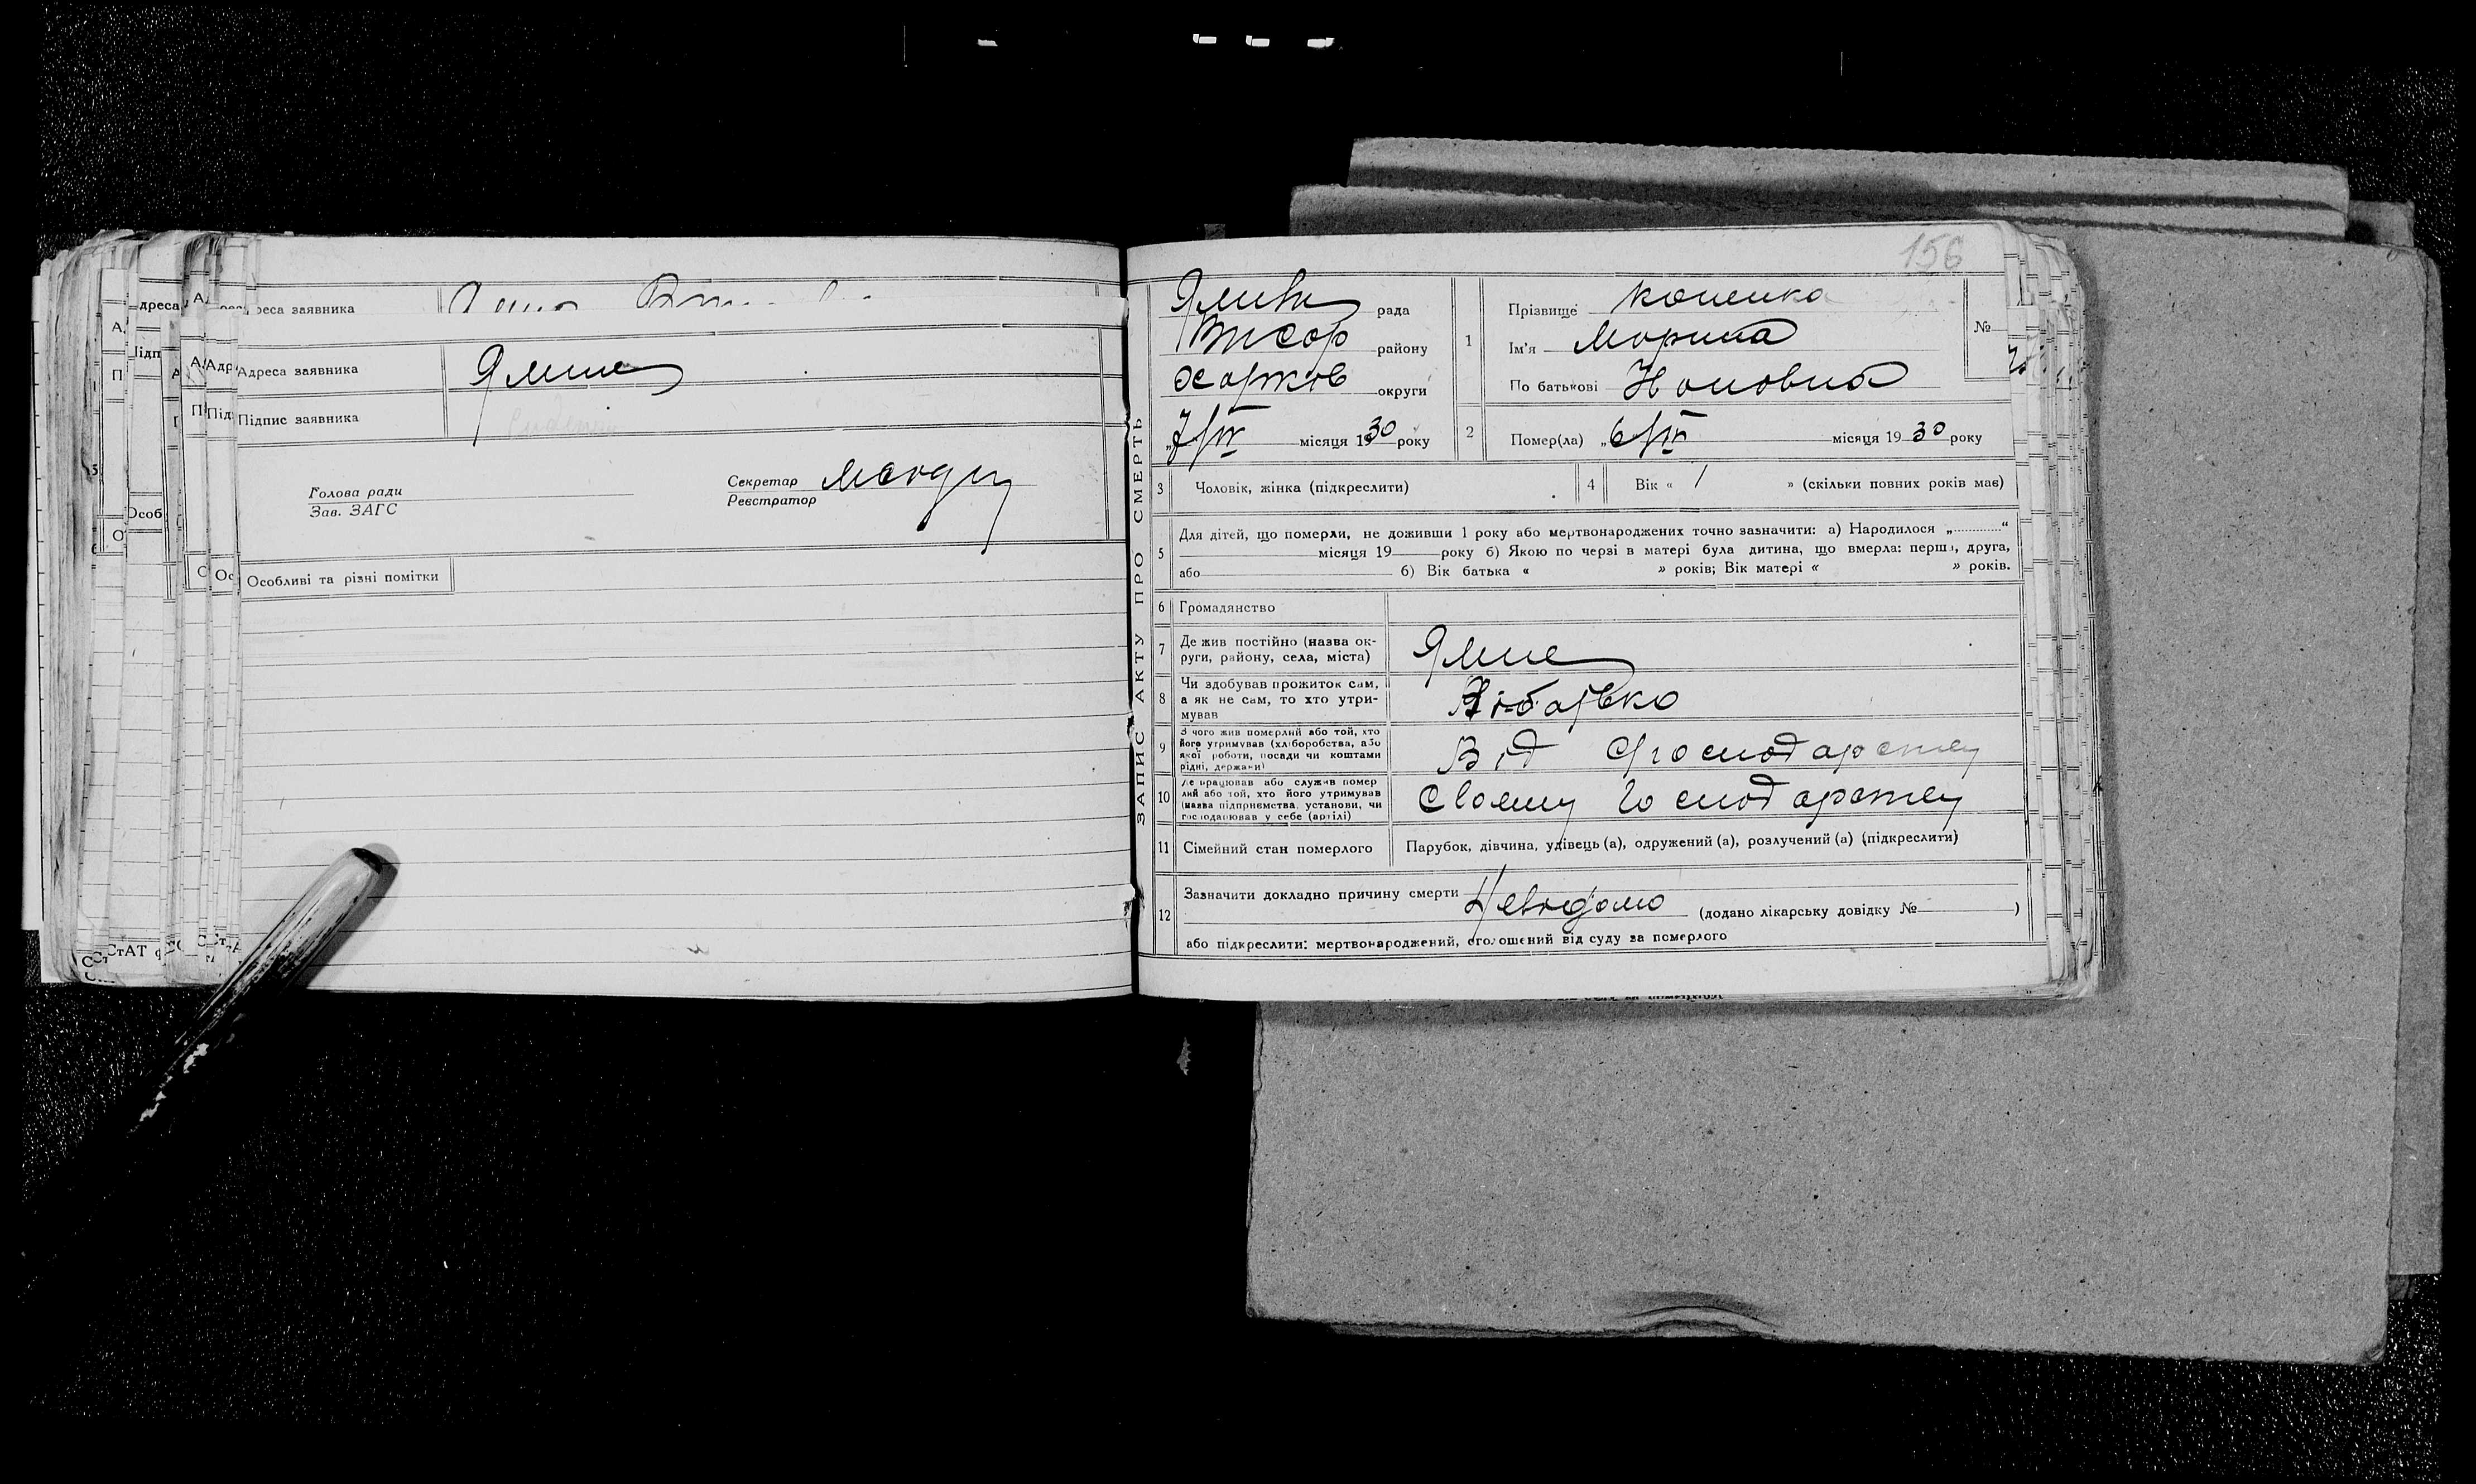 Адреса заявника
Адреса заявника Ямне
Підпис заявника
Голова ради
Зав. ЗАГС
Секретар
Реєстратор
Особливі та різні помітки
156
ЗАПИС АКТУ ПРО СМЕРТЬ
рада
району
Харков округи
7/IV місяця 1930 року
1 Прізвище Копенка
Ім'я Морина
По батькові
№
2 Помер(ла) „6/IV місяця 19 30 року
3 Чоловік, жінка (підкреслити)
4 Вік « 1 » (скільки повних років має)
5 Для дітей, що померли, не доживши 1 року або мертвонароджених точно зазначити: а) Народилося „.............“
місяця 19 року б) Якою по черзі в матері була дитина, що вмерла: перша, друга,
або б) Вік батька « » років; Вік матері « » років.
6 Громадянство
7 Де жив постійно (назва ок-
руги, району, села, міста) Ямне
8 Чи здобував прожиток сам,
а як не сам, то хто утри-
мував
9 З чого жив померлий або той, хто
його утримував (хліборобства, або
якої роботи, посади чи коштами
рідні, держави) Від Господарству
10 Де працював або служив помер
лий або той, хто його утримував
(назва підприємства, установи, чи
господарював у себе (артілі) Своему Господарству
11 Сімейний стан померлого Парубок, дівчина, удівець (а), одружений (а), розлучений (а) (підкреслити)
12 Зазначити докладно причину смерти Невідомо
(додано лікарську довідку № )
або підкреслити: мертвонароджений, оголошений від суду за померлого